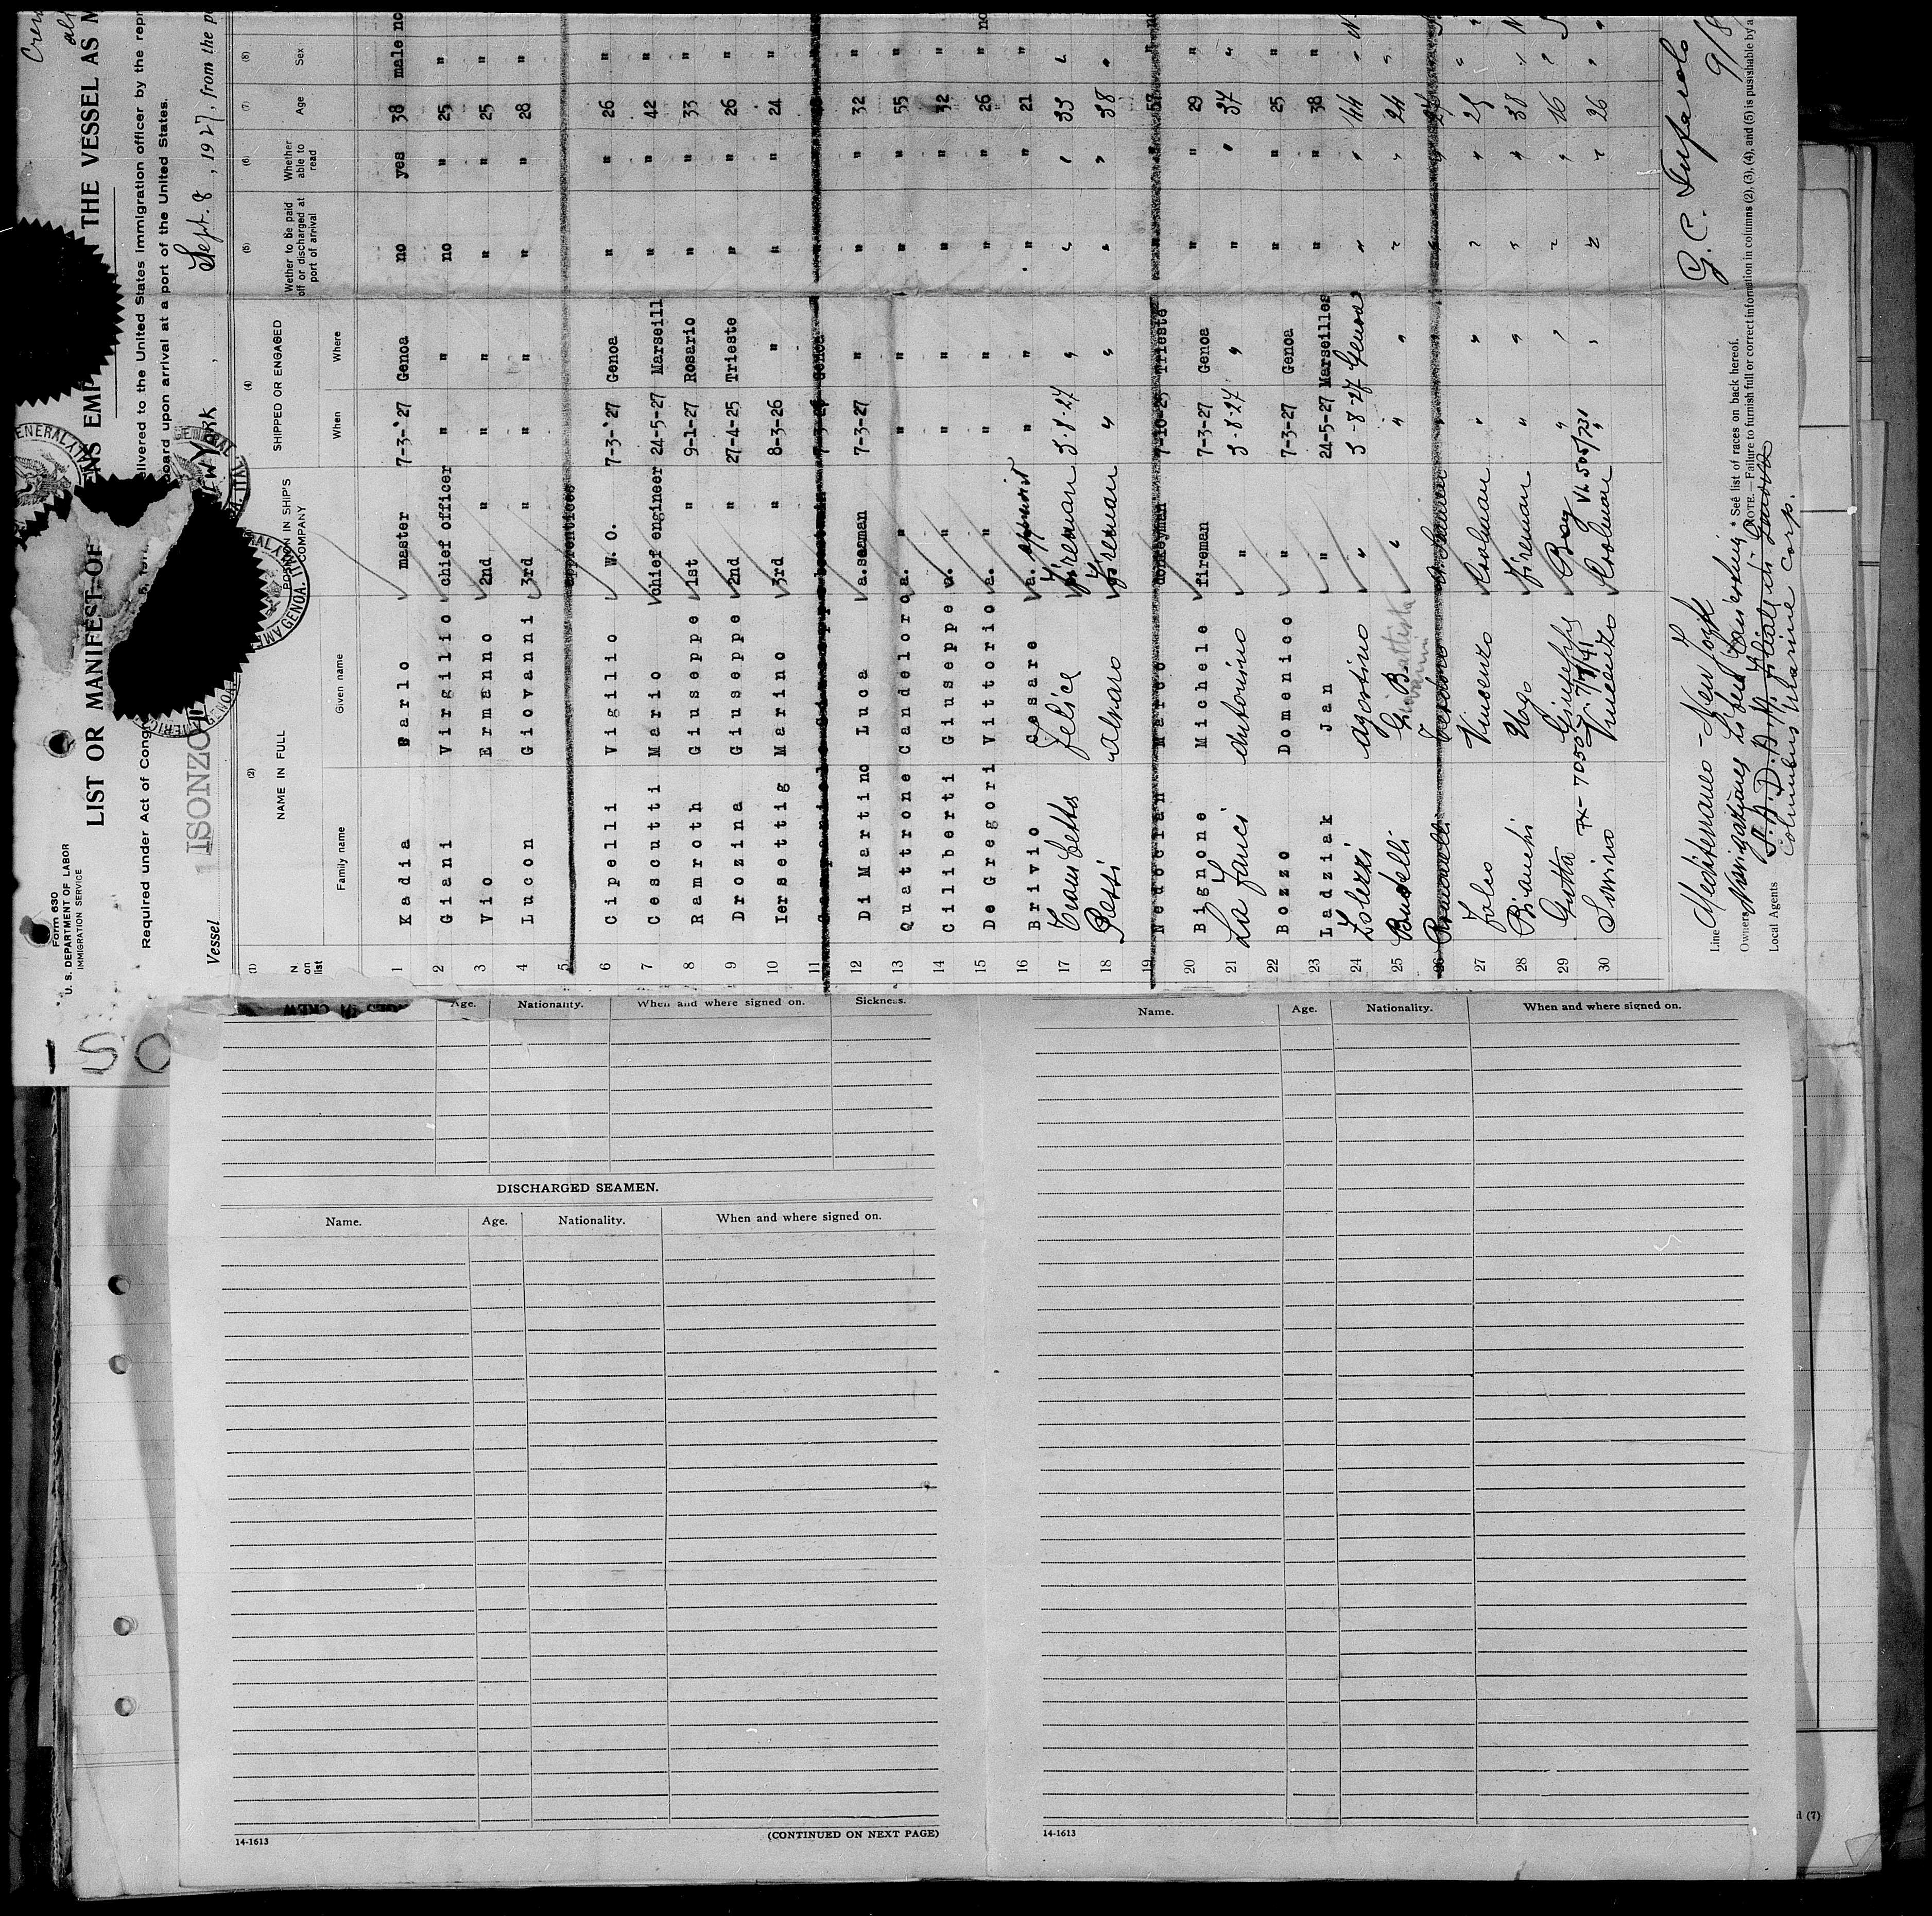 Form 630
U. S. DEPARTMENT OF LABOR
IMMIGRATION SERVICE
LIST OR MANIFEST OF
THE VESSEL AS M
Required under Act of Cong
elivered to the United States immigration officer by the repr
board upon arrival at a port of the United States.
Vessel ISONZO
NEW YORK
Sept. 8, 1927, from the p
(1) (2) (4) (5) (6) (7) (8)
N. on list
NAME IN FULL
Family name
Given name
POSITION IN SHIP'S COMPANY
SHIPPED OR ENGAGED
When
Where
Wether to be paid off or discharged at port of arrival
Whether able to read
Age
Sex
1 Kadia Karlo master 7-3-'27 Genoa no yes 38 male
2 Giani Virgilio chief officer " " no " 25 "
3 Vio Ermanno 2nd " " " " " 25 "
4 Lucon Giovanni 3rd " " " " " 28 "
5 apprentices
6 Cipelli Vigilio W. O. 7-3-'27 Genoa " " 26 "
7 Cescutti Mario chief engineer 24-5-27 Marseill " " 42 "
8 Ramroth Giuseppe 1st " 9-1-27 Rosario " " 33 "
9 Drozina Giuseppe 2nd " 27-4-25 Trieste " " 26 "
10 Iersettig Marino 3rd " 8-3-26 " " " 24 "
11 Genoa
12 Di Martino Luca a.seaman 7-3-27 " " " 32 "
13 Quattrone Candeloro a. " " " " " 55 "
14 Ciliberti Giuseppe a. " " " " " 32 "
15 De Gregori Vittorio a. " " " " " 26 "
16 Brivio Cesare a. " " " " 21 "
17 Felice Fireman 3-8-27 " " " 33 "
18 Pessi Alvaro Fireman " " " " 38 "
19 donkeyman 7-10-25 Trieste
20 Bignone Michele fireman 7-3-27 Genoa " " 29 "
21 La Fauci Antonino " 3-8-27 " " " 34 "
22 Bozzo Domenico " 7-3-27 Genoa " " 25 "
23 Ladziak Jan " 24-5-27 Marseilles " " 38 "
24 Agostino " 3-8-27 Genoa " " 44 "
25 G. Battista " " " " " 24 "
Giovanni
26
27 Falco Vincenzo Coalman " " " " 25 "
28 Bianchi Ugo Fireman " " " " 38 "
29 Giuseppe Boy " " " " 16 "
30 Vincenzo Coalman " " " " 26 "
Line Mediterraneo - New York
Owners
Local Agents
Columbus Marine Corp.
* See list of races on back hereof.
NOTE.—Failure to furnish full or correct information in columns (2), (3), (4), and (5) is punishable by a
ISO
Age. Nationality. When and where signed on. Sickness.
DISCHARGED SEAMEN.
Name. Age. Nationality. When and where signed on.
14-1613
(CONTINUED ON NEXT PAGE)
Name. Age. Nationality. When and where signed on.
14-1613
(7)